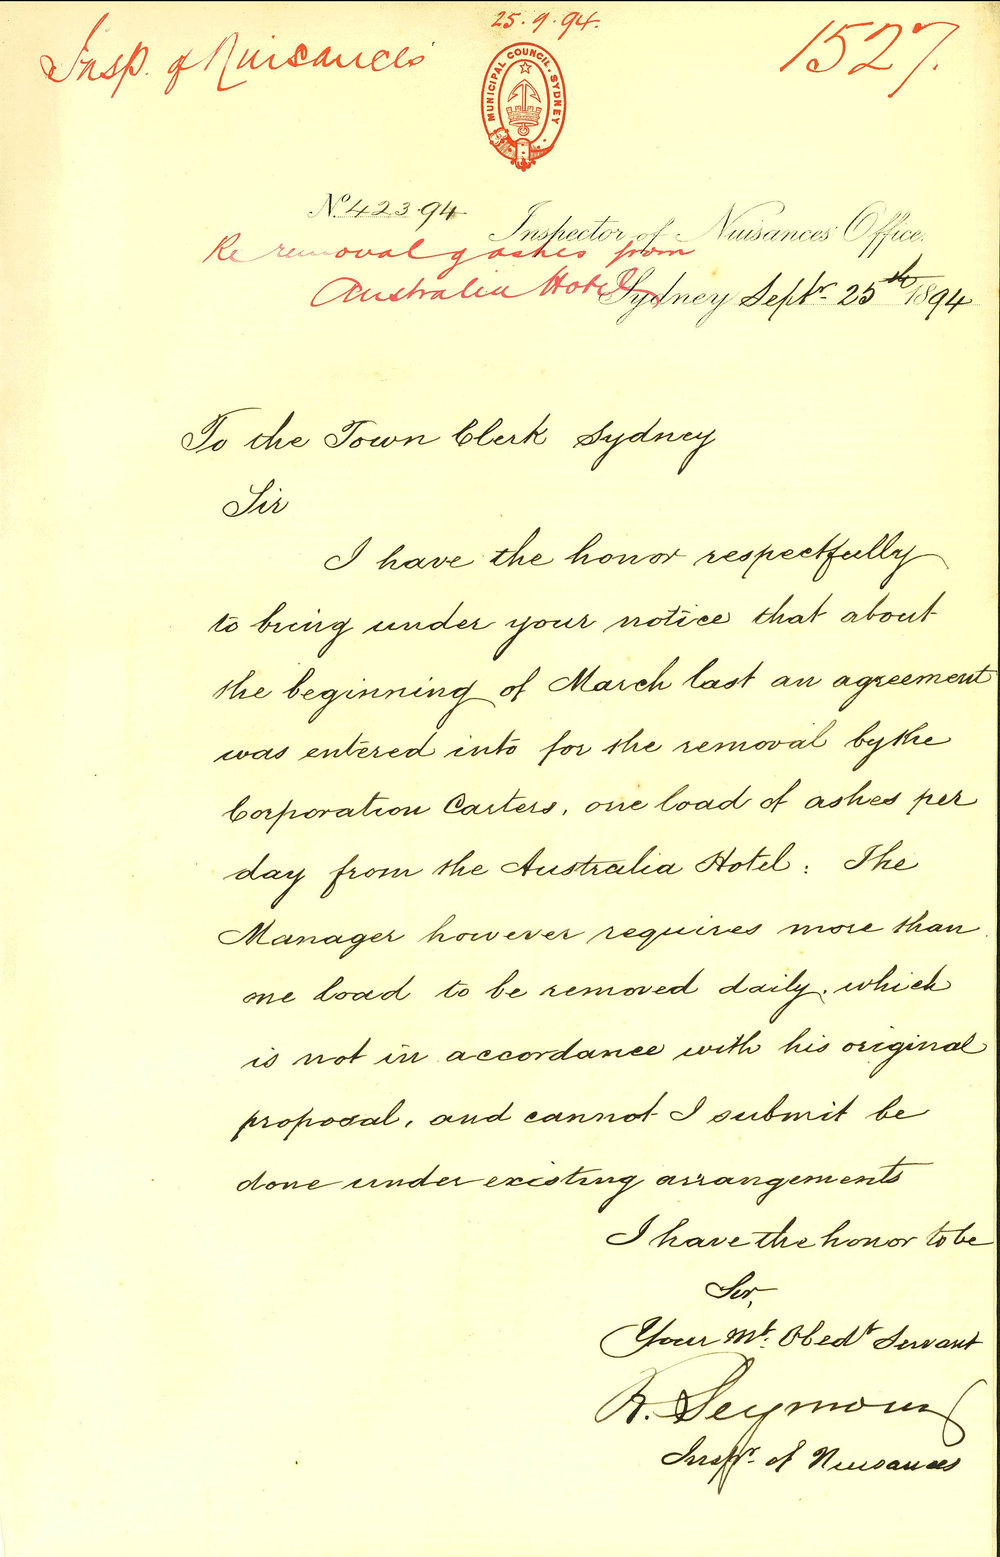 25.9.94.
Insp. of Nuisances
1527.
MUNICIPAL COUNCIL. SYDNEY
No. 423.94
Inspector of Nuisances Office.
Re removal of ashes from
Australia Hotel
Sydney Septr. 25th 1894
To the Town Clerk Sydney
Sir
I have the honor respectfully
to bring under your notice that about
the beginning of March last an agreement
was entered into for the removal by the
Corporation Carters, one load of ashes per
day from the Australia Hotel: The
Manager however requires more than
one load to be removed daily, which
is not in accordance with his original
proposal, and cannot I submit be
done under existing arrangements
I have the honor to be
Sir,
Your Mt. Obedt Servant
R. Seymour
Inspr. of Nuisances